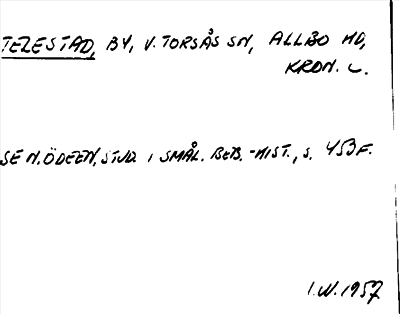 TELESTAD, BY, V. TORSÅS SN, ALLBO HD,
KRON. L.
SE N. ÖDEEN, STUD. I SMÅL. BEB.-HIST., S. 453 F.
I.W. 1957